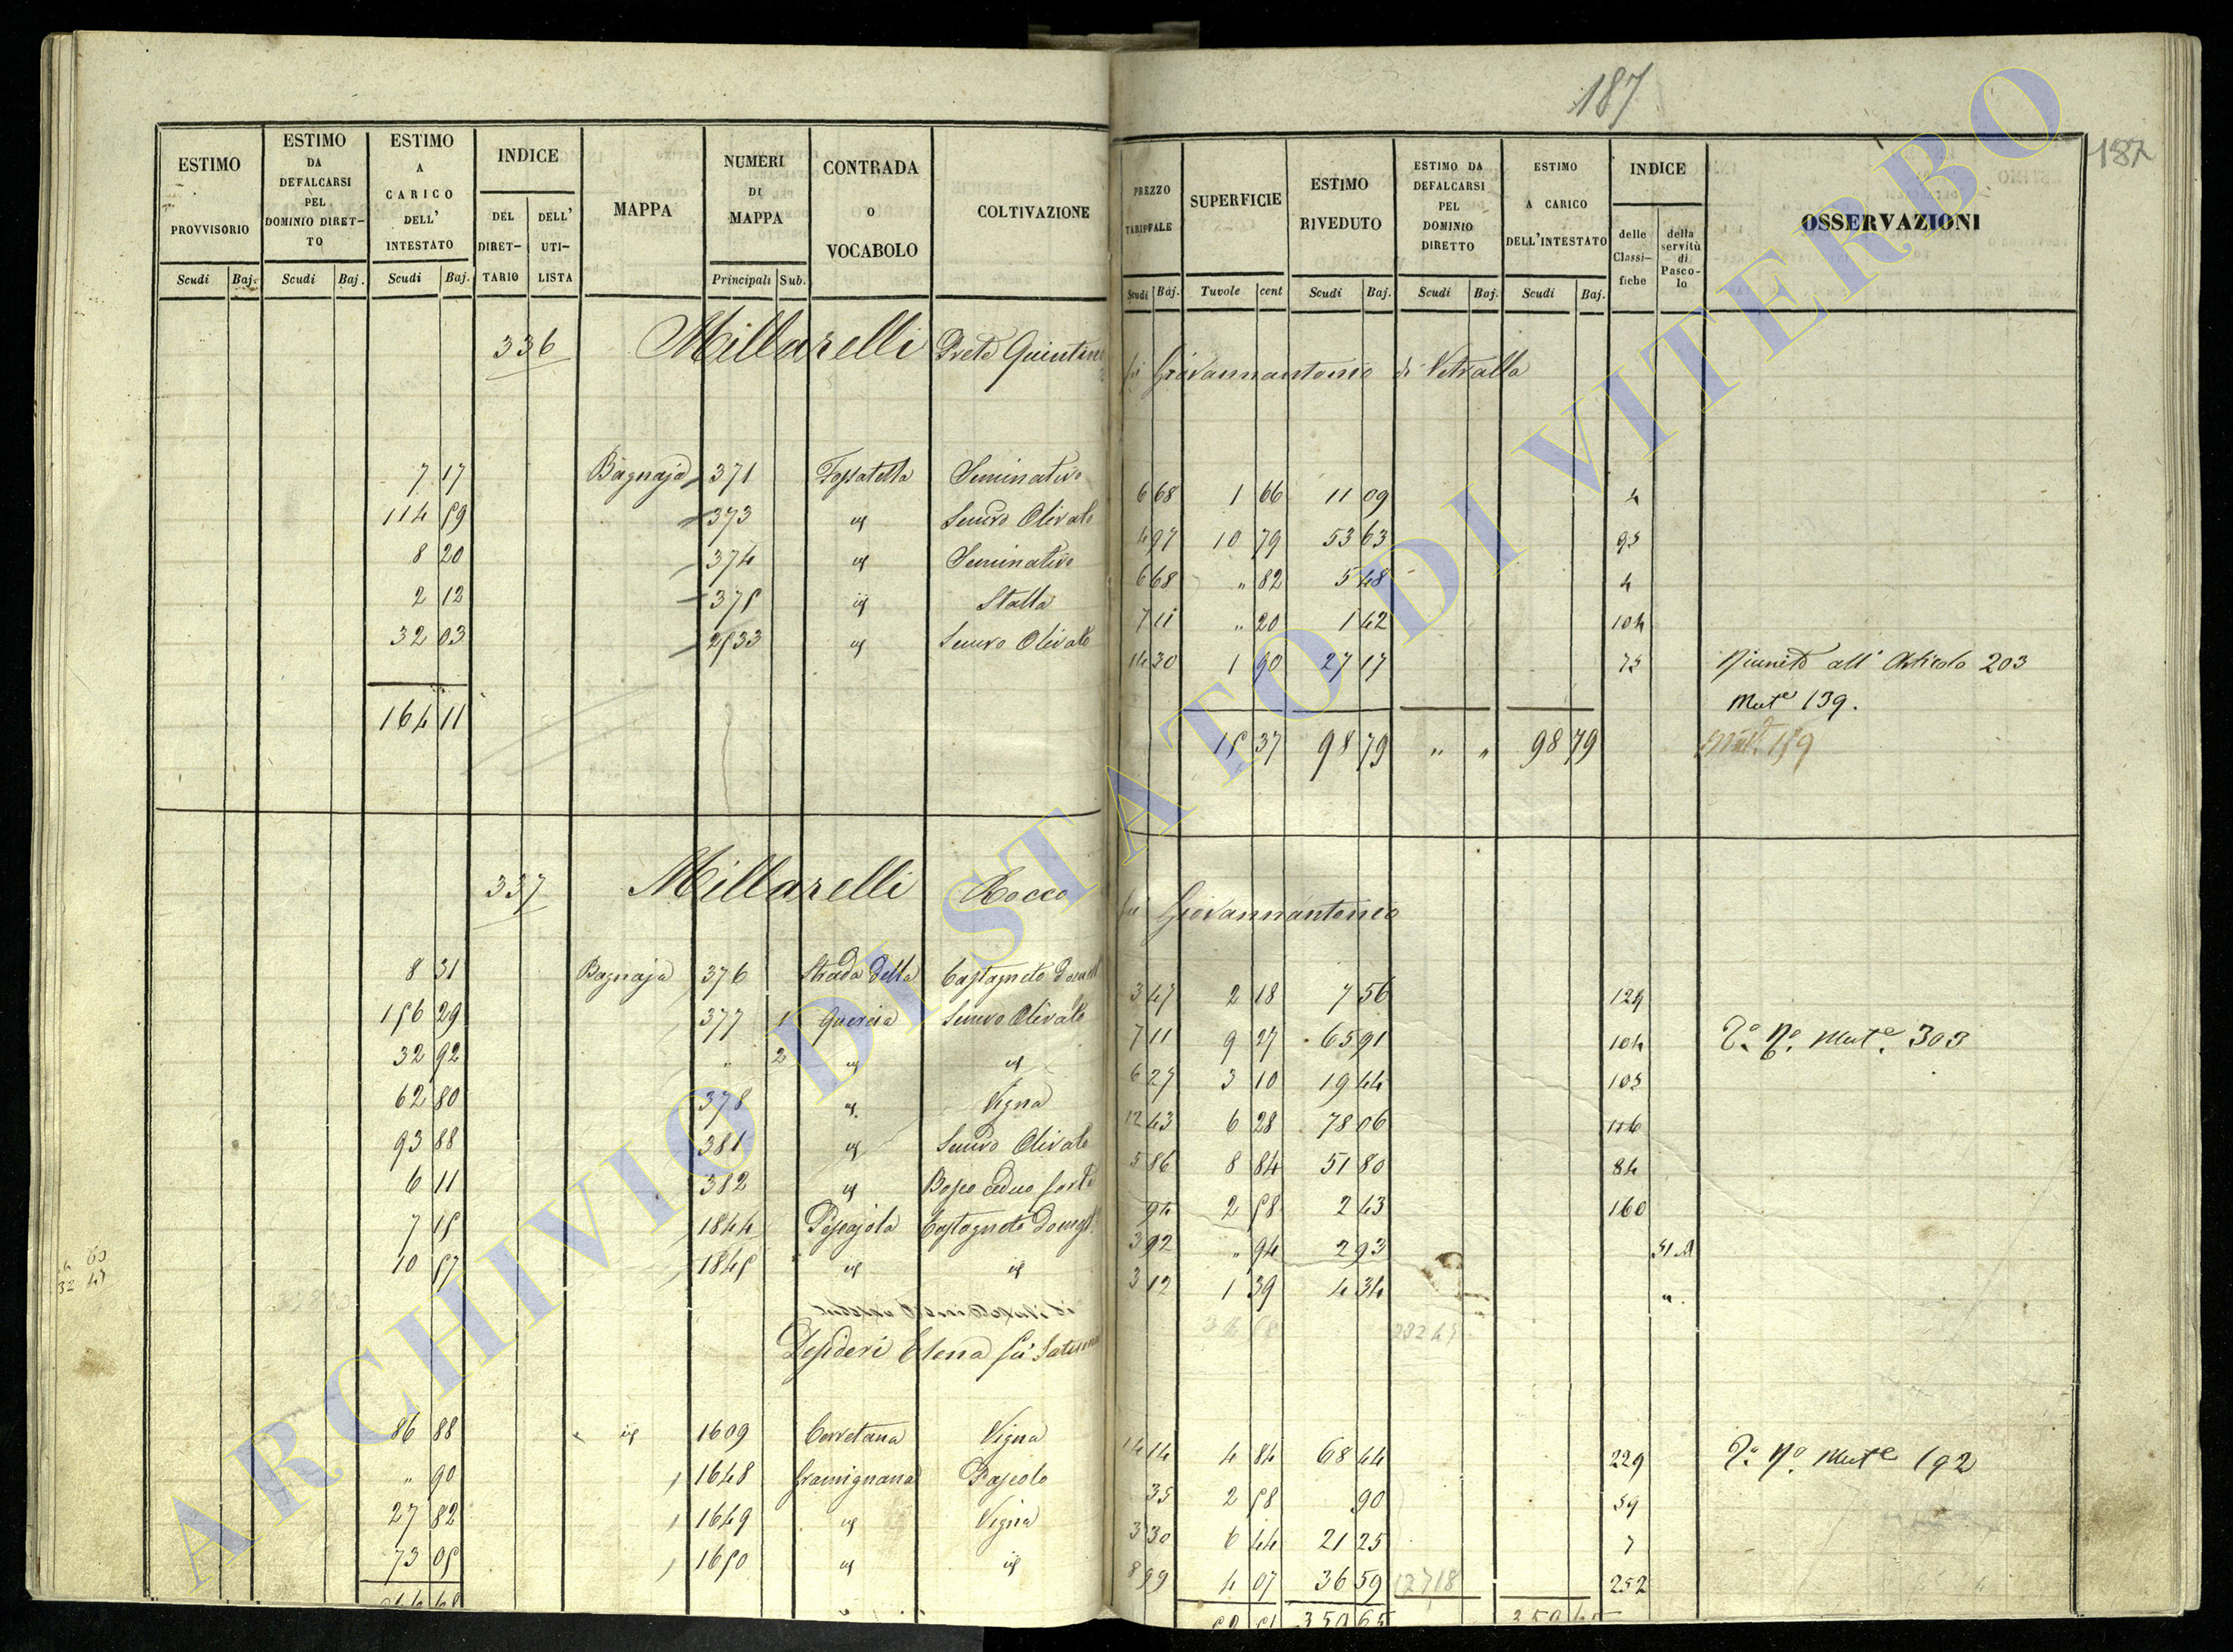 187
187
ESTIMO PROVVISORIO | ESTIMO DA DEFALCARSI PEL DOMINIO DIRETTO | ESTIMO A CARICO DELL' INTESTATO | INDICE | MAPPA | NUMERI DI MAPPA | CONTRADA O VOCABOLO | COLTIVAZIONE | PREZZO TARIFFALE | SUPERFICIE | ESTIMO RIVEDUTO | ESTIMO DA DEFALCARSI PEL DOMINIO DIRETTO | ESTIMO A CARICO DELL'INTESTATO | INDICE | OSSERVAZIONI
DEL DIRETTARIO | DELL' UTILISTA | delle Classifiche | della servitù di Pascolo
Scudi Baj. | Scudi Baj. | Scudi Baj. | Principali Sub. | Scudi Baj. | Tavole cent | Scudi Baj. | Scudi Baj. | Scudi Baj.
336 Millarelli Prete Quintino fu Giovannantonio di Vetralla
7 17 Bagnaja 371 Fossatella Seminativo 6 68 1 66 11 09 4
114 59 373 id Semvo Olivato 4 97 10 79 53 63 95
8 20 374 id Seminativo 6 68 " 82 5 48 4
2 12 375 id Stalla 7 11 " 20 1 42 104
32 03 2533 id Semvo Olivato 14 30 1 90 27 17 75 Riunito all' Articolo 203
Mute 139.
164 11 15 37 98 79 " " 98 79
337 Millarelli Rocco fu Giovannantonio
8 31 Bagnaja 376 Strada della Castagneto Domest 3 47 2 18 7 56 124
156 29 377 1 Quercia Semvo Olivato 7 11 9 27 65 91 104 Mute. 303
32 92 " 2 id id 6 27 3 10 19 44 105
62 80 378 id Vigna 12 43 6 28 78 06
93 88 381 id Semvo Olivato 5 86 8 84 51 80 84
6 11 382 id Bosco ceduo forte 94 2 58 2 43 160
7 15 1844 Pescajola Castagneto Domest. 3 92 " 94 2 93
10 57 1845 id id 3 12 1 39 4 34 "
Desideri Elena fu
86 88 id 1609 Corvetana Vigna 14 14 4 84 68 44 229 Mute 192
" 90 1648 Gramignana Pascolo 35 2 58 90 59
27 82 1649 id Vigna 3 30 6 44 21 25 7
73 05 1650 id id 8 99 4 07 36 59 127 18 252
350 65
ARCHIVIO DI STATO DI VITERBO